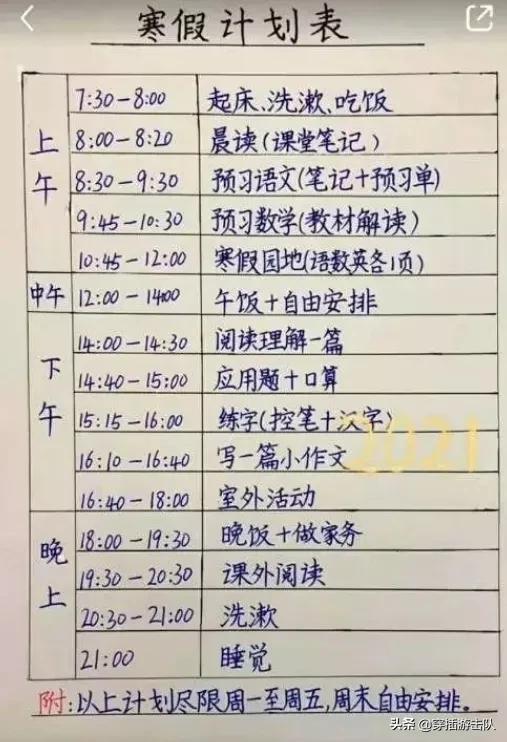 寒假计划表
上午
7:30-8:00 起床、洗漱、吃饭
8:00-8:20 晨读(课堂笔记)
8:30-9:30 预习语文(笔记+预习单)
9:45-10:30 预习数学(教材解读)
10:45-12:00 寒假园地(语数英各1页)
中午 12:00-14:00 午饭+自由安排
下午
14:00-14:30 阅读理解一篇
14:40-15:00 应用题+口算
15:15-16:00 练字(控笔+汉字)
16:10-16:40 写一篇小作文
2021
16:40-18:00 室外活动
晚上
18:00-19:30 晚饭+做家务
19:30-20:30 课外阅读
20:30-21:00 洗漱
21:00 睡觉
附:以上计划尽限周一至周五,周末自由安排。
头条@穿插游击队